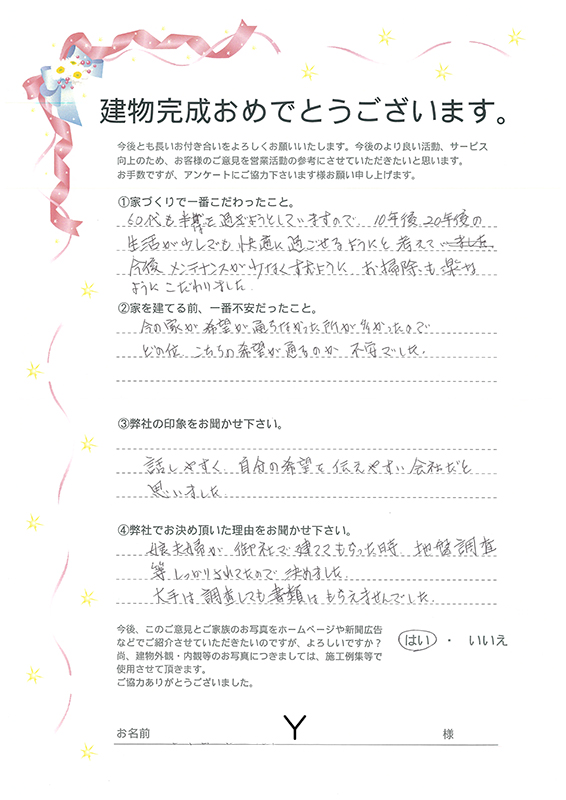 建物完成おめでとうございます。
今後とも長いお付き合いをよろしくお願いいたします。今後のより良い活動、サービス
向上のため、お客様のご意見を営業活動の参考にさせていただきたいと思います。
お手数ですが、アンケートにご協力下さいます様お願い申し上げます。
①家づくりで一番こだわったこと。
60代も半ばを過ぎようとしていますので、10年後、20年後の
生活が少しでも快適に過ごせるようにと考えていました。
今後メンテナンスが少なくすむように お掃除も楽な
ようにこだわりました。
②家を建てる前、一番不安だったこと。
今の家が希望が通らなかった所が多かったので
どの位 こちらの希望が通るのか 不安でした。
③弊社の印象をお聞かせ下さい。
話しやすく 自分の希望を伝えやすい会社だと
思いました
④弊社でお決め頂いた理由をお聞かせ下さい。
娘夫婦が 御社で建ててもらった時 地盤調査
等 しっかりされてたので 決めました。
大手は調査しても書類はもらえませんでした。
今後、このご意見とご家族のお写真をホームページや新聞広告
などでご紹介させていただきたいのですが、よろしいですか？
はい ・ いいえ
尚、建物外観・内観等のお写真につきましては、施工例集等で
使用させて頂きます。
ご協力ありがとうございました。
お名前 Y 様